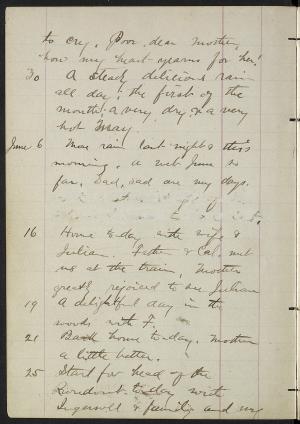 to cry. Poor, dear mother,
how my heart yearns for her!
30 A steady delicious rain
all day; the first of the
month; a very dry, & a very
hot May.
June 6 More rain last night & this
morning. a wet June so
far. Sad, sad are my days.
16 Home to-day with wife &
Julian. Father & Cal. met
us at the train, Mother
greatly rejoiced to see Julian
19 A delightful day in the
woods with F.
21 Back home to-day. Mother
a little better.
25 Start for head of the
Rondout to-day with
Ingersoll & family and my